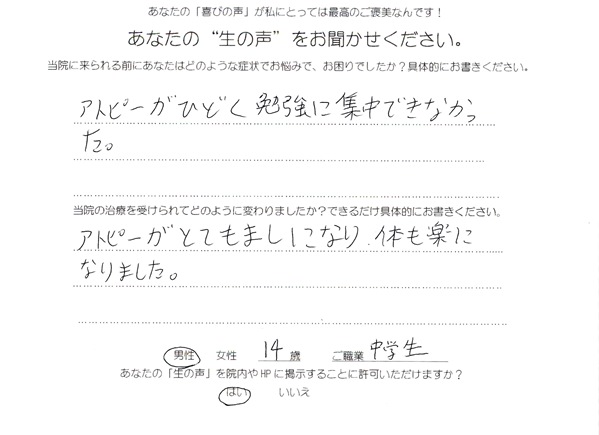 あなたの「喜びの声」が私にとっては最高のご褒美なんです！
あなたの“生の声”をお聞かせください。
当院に来られる前にあなたはどのような症状でお悩みで、お困りでしたか？具体的にお書きください。
アトピーがひどく勉強に集中できなかっ
た。
当院の治療を受けられてどのように変わりましたか？できるだけ具体的にお書きください。
アトピーがとてもましになり、体も楽に
なりました。
男性 女性 14歳 ご職業 中学生
あなたの「生の声」を院内やHPに掲示することに許可いただけますか？
はい いいえ